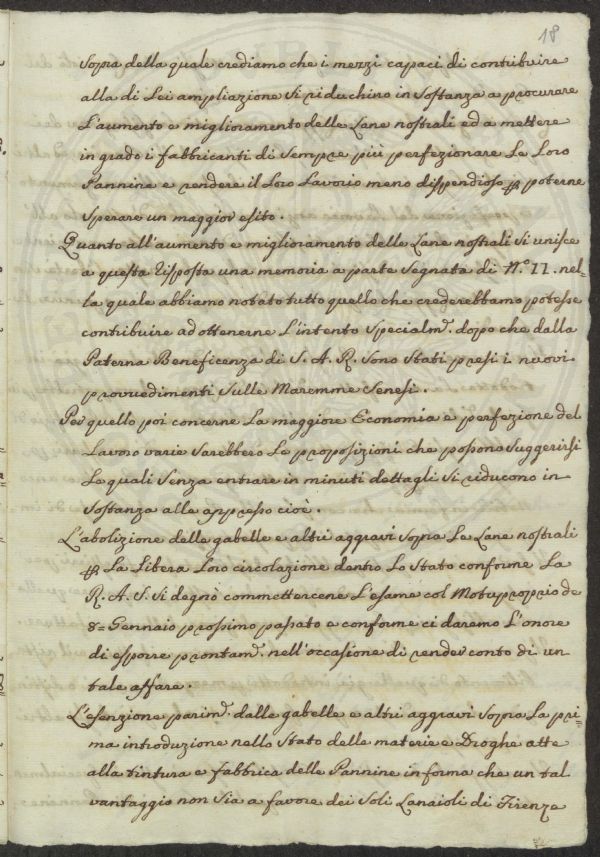 18
Sopra della quale crediamo che i mezzi capaci di contribuire
alla di Lei ampliazione si riduchino in sostanza a procurare
L'aumento e miglioramento delle Lane nostrali ed a mettere
in grado i fabbricanti di sempre più perfezionare Le Loro
Pannine e rendere il Loro Lavorio meno dispendioso p poterne
sperare un maggior esito.
Quanto all'aumento e miglioramento delle Lane nostrali si unisce
a questa risposta una memoria a parte segnata di N.º II. nel=
la quale abbiamo notato tutto quello che crederebbamo potesse
contribuire ad ottenerne L'intento specialm.e dopo che dalla
Paterna Beneficenza di S. A. R. sono stati presi i nuovi
provvedimenti sulle Maremme Senesi.
Per quello poi concerne La maggiore Economia e perfezione del
Lavoro varie sarebbero Le proposizioni che possono suggerirsi
Le quali senza entrare in minuti dettagli si riducono in
sostanza alle appresso cioè.
L'abolizione delle gabelle e altri aggravi sopra Le Lane nostrali
p La Libera Loro circolazione dentro Lo Stato conforme La
R. A. S. si degnò commettercene L'esame col Motuproprio de
8= Gennaio prossimo passato e conforme ci daremo L'onore
di esporre prontam.e nell'occasione di render conto di un
tale affare.
L'esenzione parim.e dalle gabelle e altri aggravi sopra La pri=
ma introduzione nello Stato delle materie e Droghe atte
alla tintura e fabbrica delle Pannine in forma che un tal
vantaggio non sia a favore dei soli Lanaioli di Firenze